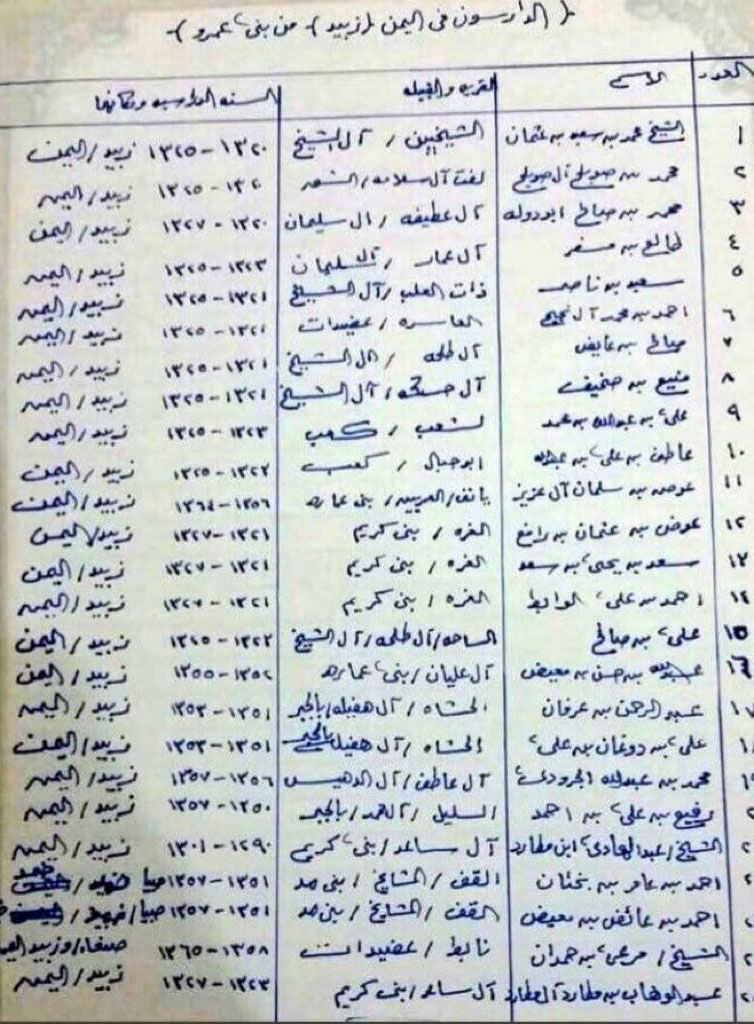 ( الدارسون في اليمن (زبيد) - من بني عمرو )
العدد الاسم القرية والقبيلة السنة الدراسية ومكانها
١ الشيخ محمد بن سعيد بن عثمان الشيخين / آل الشيخ ١٣٢٠-١٣٢٥ زبيد/اليمن
٢ محمد بن صويلح آل صويلح آل سلامه/ ١٣٢٠-١٣٢٥ زبيد/اليمن
٣ محمد بن صالح ابودوله آل عطيفه / ال سليمان ١٣٢٠-١٣٢٧ زبيد/اليمن
٤ بن مسفر آل عمار / آل سليمان ١٣٢٣-١٣٢٥ زبيد/اليمن
٥ سعيد بن ناصر ذات العلب/آل الشيخ ١٣٢١-١٣٢٥ زبيد/اليمن
٦ احمد بن محمد آل / عضيدات ١٣٢١-١٣٢٥ زبيد/اليمن
٧ صالح بن عايض آل طلحه / ال الشيخ ١٣٢١-١٣٢٥ زبيد/اليمن
٨ منيع بن آل / آل الشيخ ١٣٢١-١٣٢٥ زبيد/اليمن
٩ علي بن عبدالله بن محمد لشعب / كعب ١٣٢٣-١٣٢٥ زبيد/اليمن
١٠ عاطف بن علي بن عبدالله ابوحبال / كعب ١٣٢٢-١٣٢٥ زبيد/اليمن
١١ عوض بن سلمان آل عزيز / بني عماره ١٣٥٦-١٣٦٤ زبيد/اليمن
١٢ عوض بن عثمان بن رافع الغره / بني كريم ١٣٢١-١٣٢٧ زبيد/اليمن
١٣ سعد بن يحيى بن سعد الغره / بني كريم ١٣٢١-١٣٢٧ زبيد/اليمن
١٤ احمد بن علي الوابط الغره / بني كريم ١٣٢١-١٣٢٧ زبيد/اليمن
١٥ علي بن صالح الساحه/آل طلحه/آل الشيخ ١٣٢٢-١٣٢٥ زبيد/اليمن
١٦ عبدالله بن حسن بن معيض آل عليان/بني عماره ١٣٥٢-١٣٥٥ زبيد/اليمن
١٧ عبدالرحمن بن عرفان الحشاه / آل هفيله/بالجبر ١٣٥١-١٣٥٣ زبيد/اليمن
علي بن دوغان بن علي الحشاه / آل هفيله/بالجبر ١٣٥١-١٣٥٣ زبيد/اليمن
محمد بن عبدالله الجرودي آل عاطف/آل الدهيس ١٣٥٦-١٣٥٧ زبيد/اليمن
رفيع بن علي بن احمد السليل / /بالجبر ١٣٥٠-١٣٥٧ زبيد/اليمن
الشيخ/عبدالهادي ابن مطارد آل ساعد/بني كريم ١٢٩٠-١٣٠١ زبيد/اليمن
احمد بن عامر بن بخثان القف /المشايخ / بني مد ١٣٥١-١٣٥٧ صبيا
احمد بن عائض بن معيض القف /المشايخ / بني مد ١٣٥١-١٣٥٧ صبيا/
الشيخ / مرعي بن حمدان نابط / عضيدات ١٣٥٨-١٣٦٥ صنعاء/وزبيد
عبدالوهاب بن مطارد آل مطارد آل ساعد/بني كريم ١٣٢٣-١٣٢٧ زبيد/اليمن